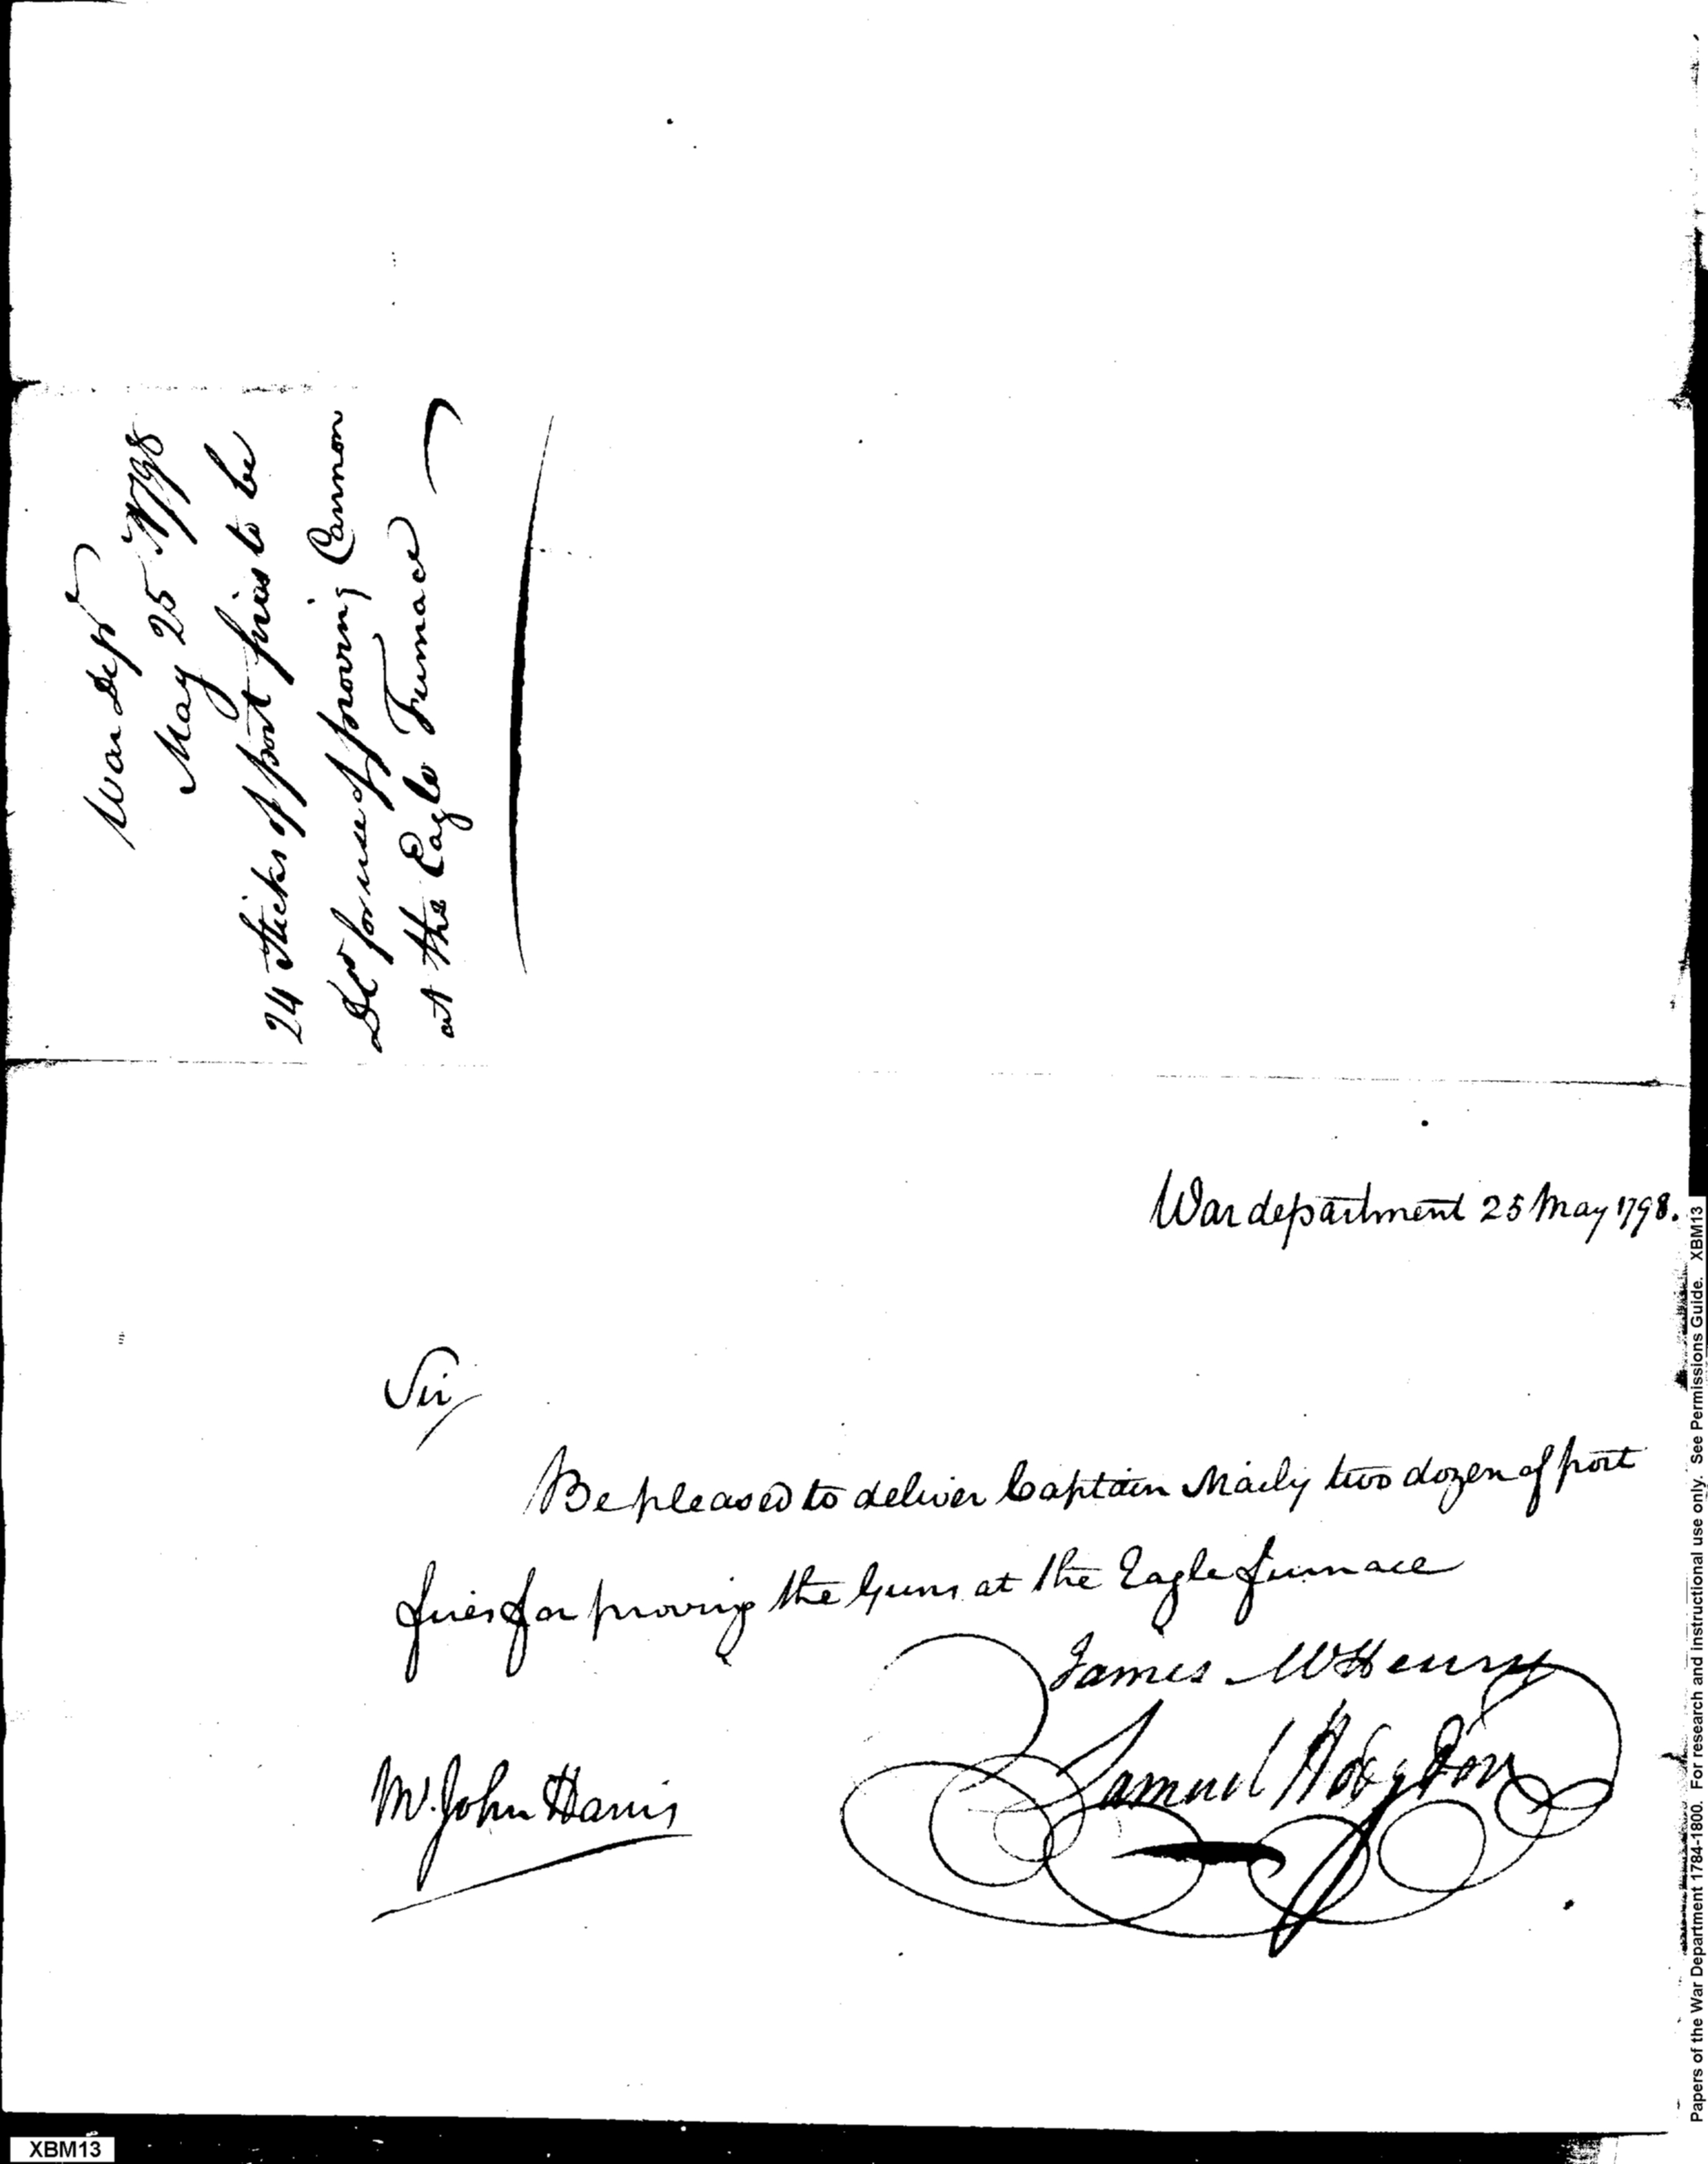 War Dept
May 25 1798
24 Sticks of port fires to be
Dd for use of proving Cannon
at the Eagle Furnace
War department 25 May 1798.
Sir
Be pleased to deliver Captain two dozen of port
fires for proving the Guns at the Eagle furnace
James McHenry
Samuel Hodgdon
Mr. John Harris
Papers of the War Department 1784-1800. For research and instructional use only. See Permissions Guide. XBM13
XBM13